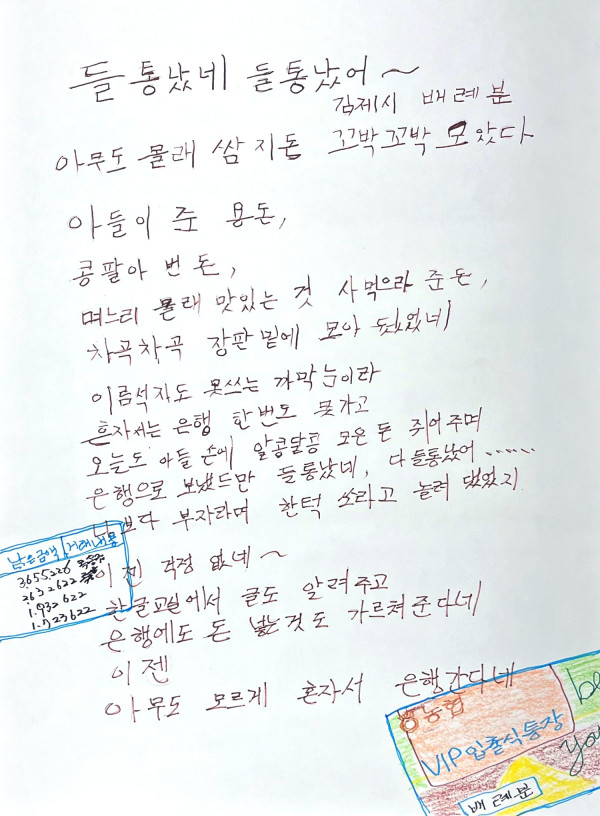 들통났네 들통났어~
김제시 배례분
아무도 몰래 쌈지돈 꼬박꼬박 모았다
아들이 준 용돈,
콩팔아 번돈,
며느리 몰래 맛있는 것 사먹으라 준돈,
차곡차곡 장판밑에 모아 뒀었네
이름석자도 못쓰는 까막눈이라
혼자서는 은행 한번도 못가고
오늘도 아들 손에 알콩달콩 모은돈 쥐어주며
은행으로 보냈드만 들통났네, 다들통났어……
보다 부자라며 한턱 쏘라고 놀려 댔었지
이젠 걱정 없네~
한글교실에서 글도 알려주고
은행에도 돈 넣는것도 가르쳐준다네
이젠
아무도 모르게 혼자서 은행간다네
남은금액 거래내용
3655226
2632622
1.932622
1.723622
농협
VIP입출식통장
be
you
배례분